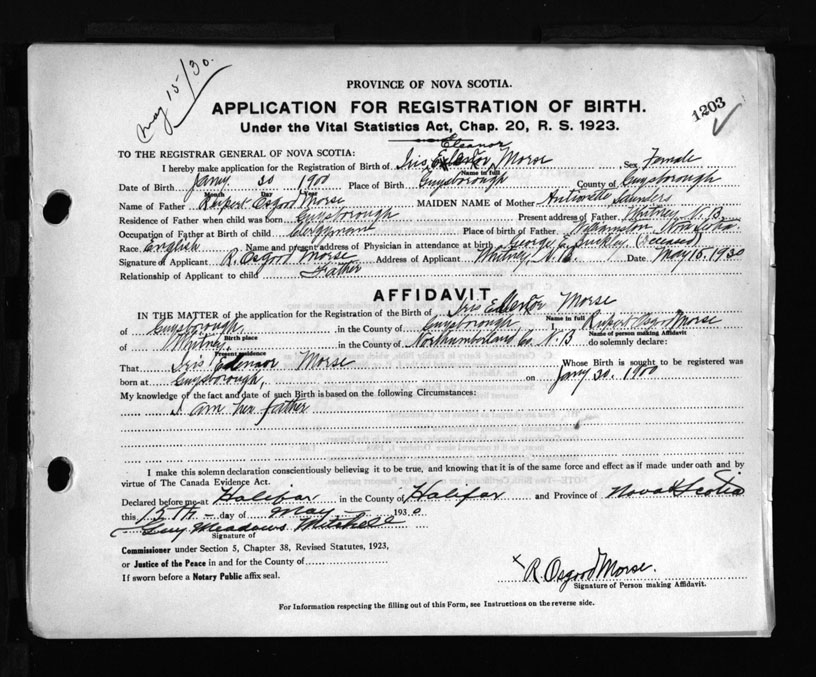 May 15/30.
PROVINCE OF NOVA SCOTIA.
APPLICATION FOR REGISTRATION OF BIRTH.
1203
Under the Vital Statistics Act, Chap. 20, R. S. 1923.
Eleanor
TO THE REGISTRAR GENERAL OF NOVA SCOTIA:
I hereby make application for the Registration of Birth of Iris Morse Sex Female
Name in full
Date of Birth Jany 30 1900 Place of Birth Guysborough County of Guysborough
Month Day Year
Name of Father Rupert Osgood Morse MAIDEN NAME of Mother Saunders
Residence of Father when child was born Guysborough Present address of Father Whitney, N.B.
Occupation of Father at Birth of Child Clergyman Place of birth of Father Nova Scotia.
Race English Name and present address of Physician in attendance at birth George E. Buckley (Deceased)
Signature of Applicant R. Osgood Morse Address of Applicant Whitney, N.B. Date May 15, 1930
Relationship of Applicant to child Father
AFFIDAVIT
IN THE MATTER of the application for the Registration of the Birth of Iris Morse
Name in full
of Guysborough, in the County of Guysborough I, Rupert Osgood Morse
Birth place Name of person making Affidavit
of Whitney, in the County of Northumberland Co. N.B do solemnly declare:
Present residence
That Iris Morse Whose Birth is sought to be registered was
born at Guysborough, on Jany 30. 1900
My knowledge of the fact and date of such Birth is based on the following Circumstances:
I am her father
I make this solemn declaration conscientiously believing it to be true, and knowing that it is of the same force and effect as if made under oath and by
virtue of The Canada Evidence Act.
Declared before me at Halifax in the County of Halifax and Province of Nova Scotia
this 15th day of May 1930
Guy Meadows Mitchell
Signature of
Commissioner under Section 5, Chapter 38, Revised Statutes, 1923,
or Justice of the Peace in and for the County of
If sworn before a Notary Public affix seal.
x R. Osgood Morse.
Signature of Person making Affidavit.
For Information respecting the filling out of this Form, see Instructions on the reverse side.